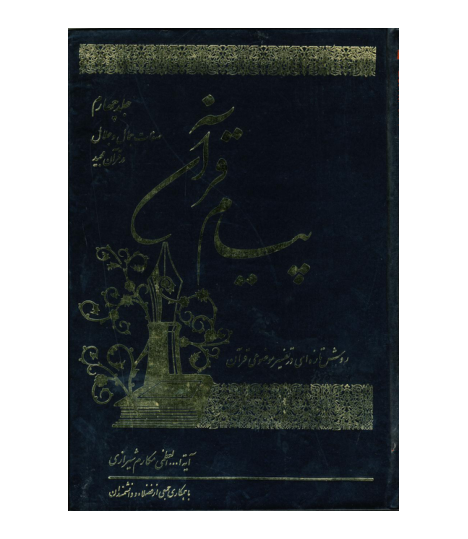 پیام قرآن
جلد چهارم
معرفت جلال و جمال
در قرآن مجید
روش تازه‌ای در تفسیر موضوعی قرآن
آیة ا... العظمی مکارم شیرازی
با همکاری جمعی از فضلاء و دانشمندان